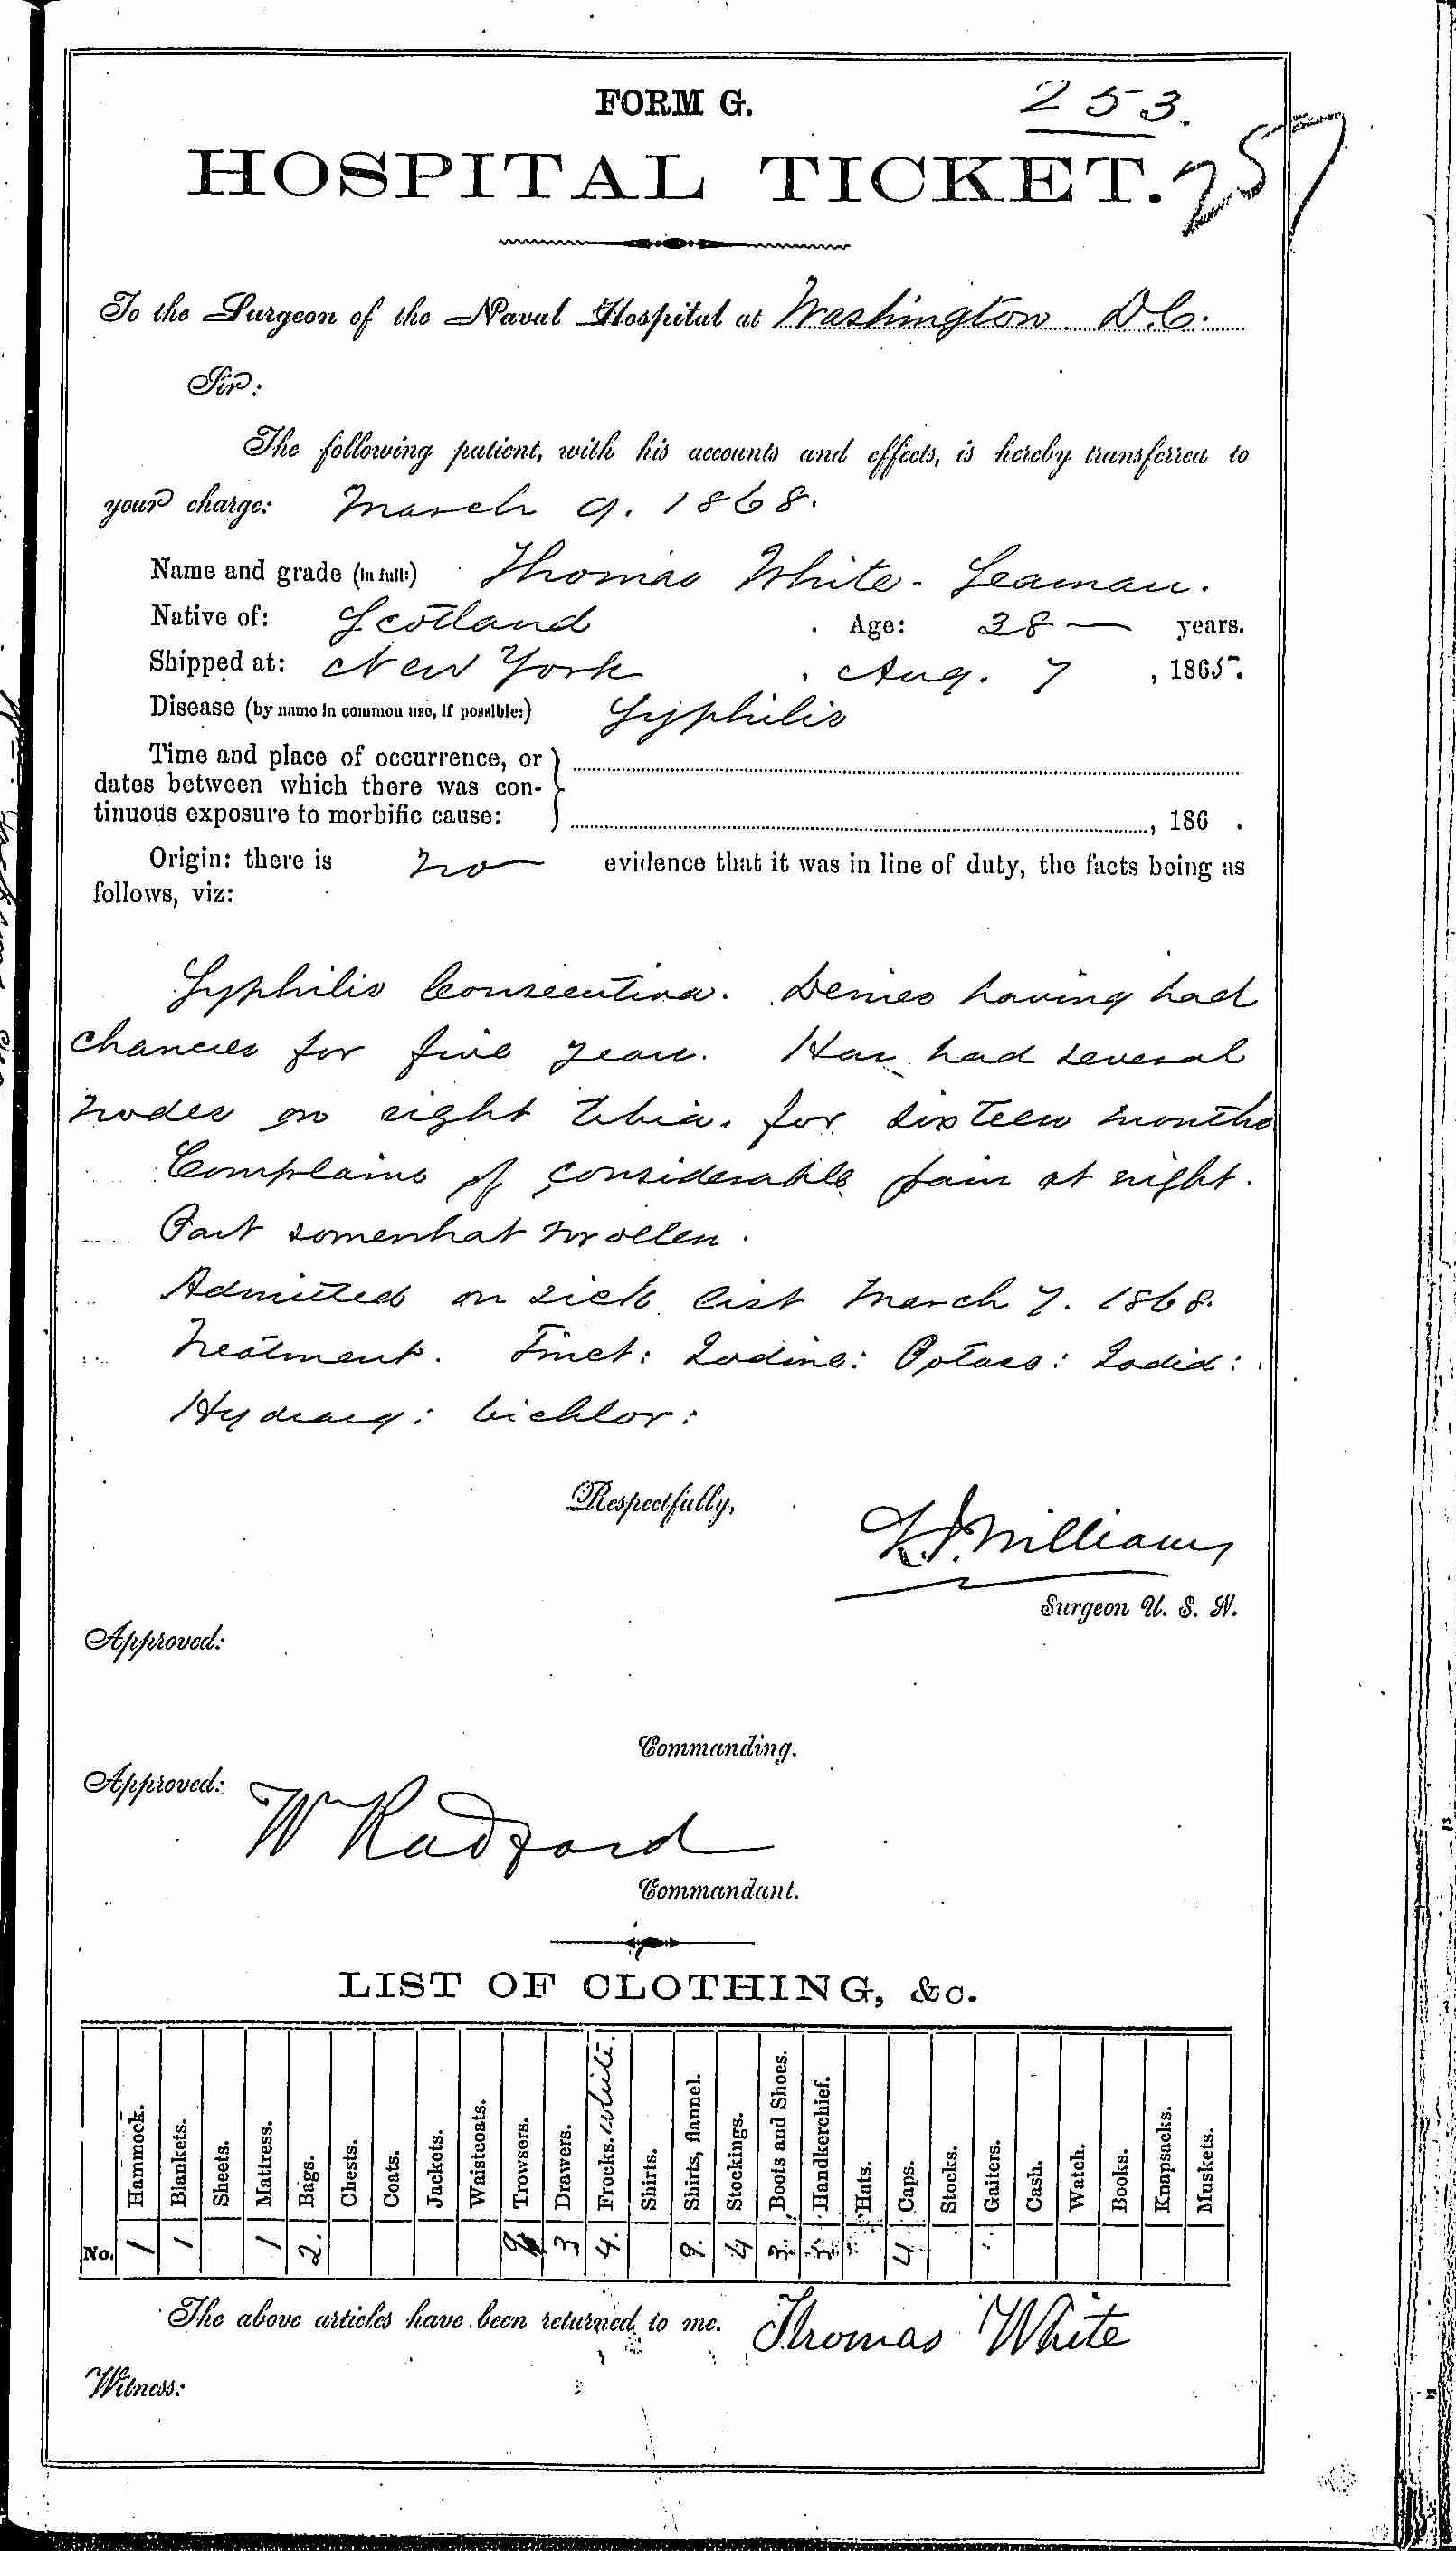 FORM G.
253.
HOSPITAL TICKET.
257
To the Surgeon of the Naval Hospital at Washington D.C.
Sir:
The following patient, with his accounts and effects, is hereby transferred to
your charge: March 9. 1868.
Name and grade (in full:) Thomas White - Seaman.
Native of: Scotland. Age: 38 — years.
Shipped at: New York, Aug. 7, 1865.
Disease (by name in common use, if possible:) Syphilis
Time and place of occurrence, or
dates between which there was con-
tinuous exposure to morbific cause: , 186 .
Origin: there is no evidence that it was in line of duty, the facts being as
follows, viz:
Syphilis Consecutiva. Denies having had
chancres for five years. Has had several
nodes on right tibia. for sixteen months
Complains of considerable pain at night.
Part somewhat swollen.
Admitted on sick list March 7. 1868.
Treatment. Tinct: Iodine: Potass: Iodid:
Hydrarg: bichlor:
Respectfully,
Williams
Surgeon U. S. N.
Approved:
Commanding.
Approved: W Radford
Commandant.
LIST OF CLOTHING, &c.
Hammock. Blankets. Sheets. Mattress. Bags. Chests. Coats. Jackets. Waistcoats. Trowsers. Drawers. Frocks. white. Shirts. Shirts, flannel. Stockings. Boots and Shoes. Handkerchief. Hats. Caps. Stocks. Gaiters. Cash. Watch. Books. Knapsacks. Muskets.
No. 1 1 1 2. 3 4. 9. 4 3. 4
The above articles have been returned to me. Thomas White
Witness: